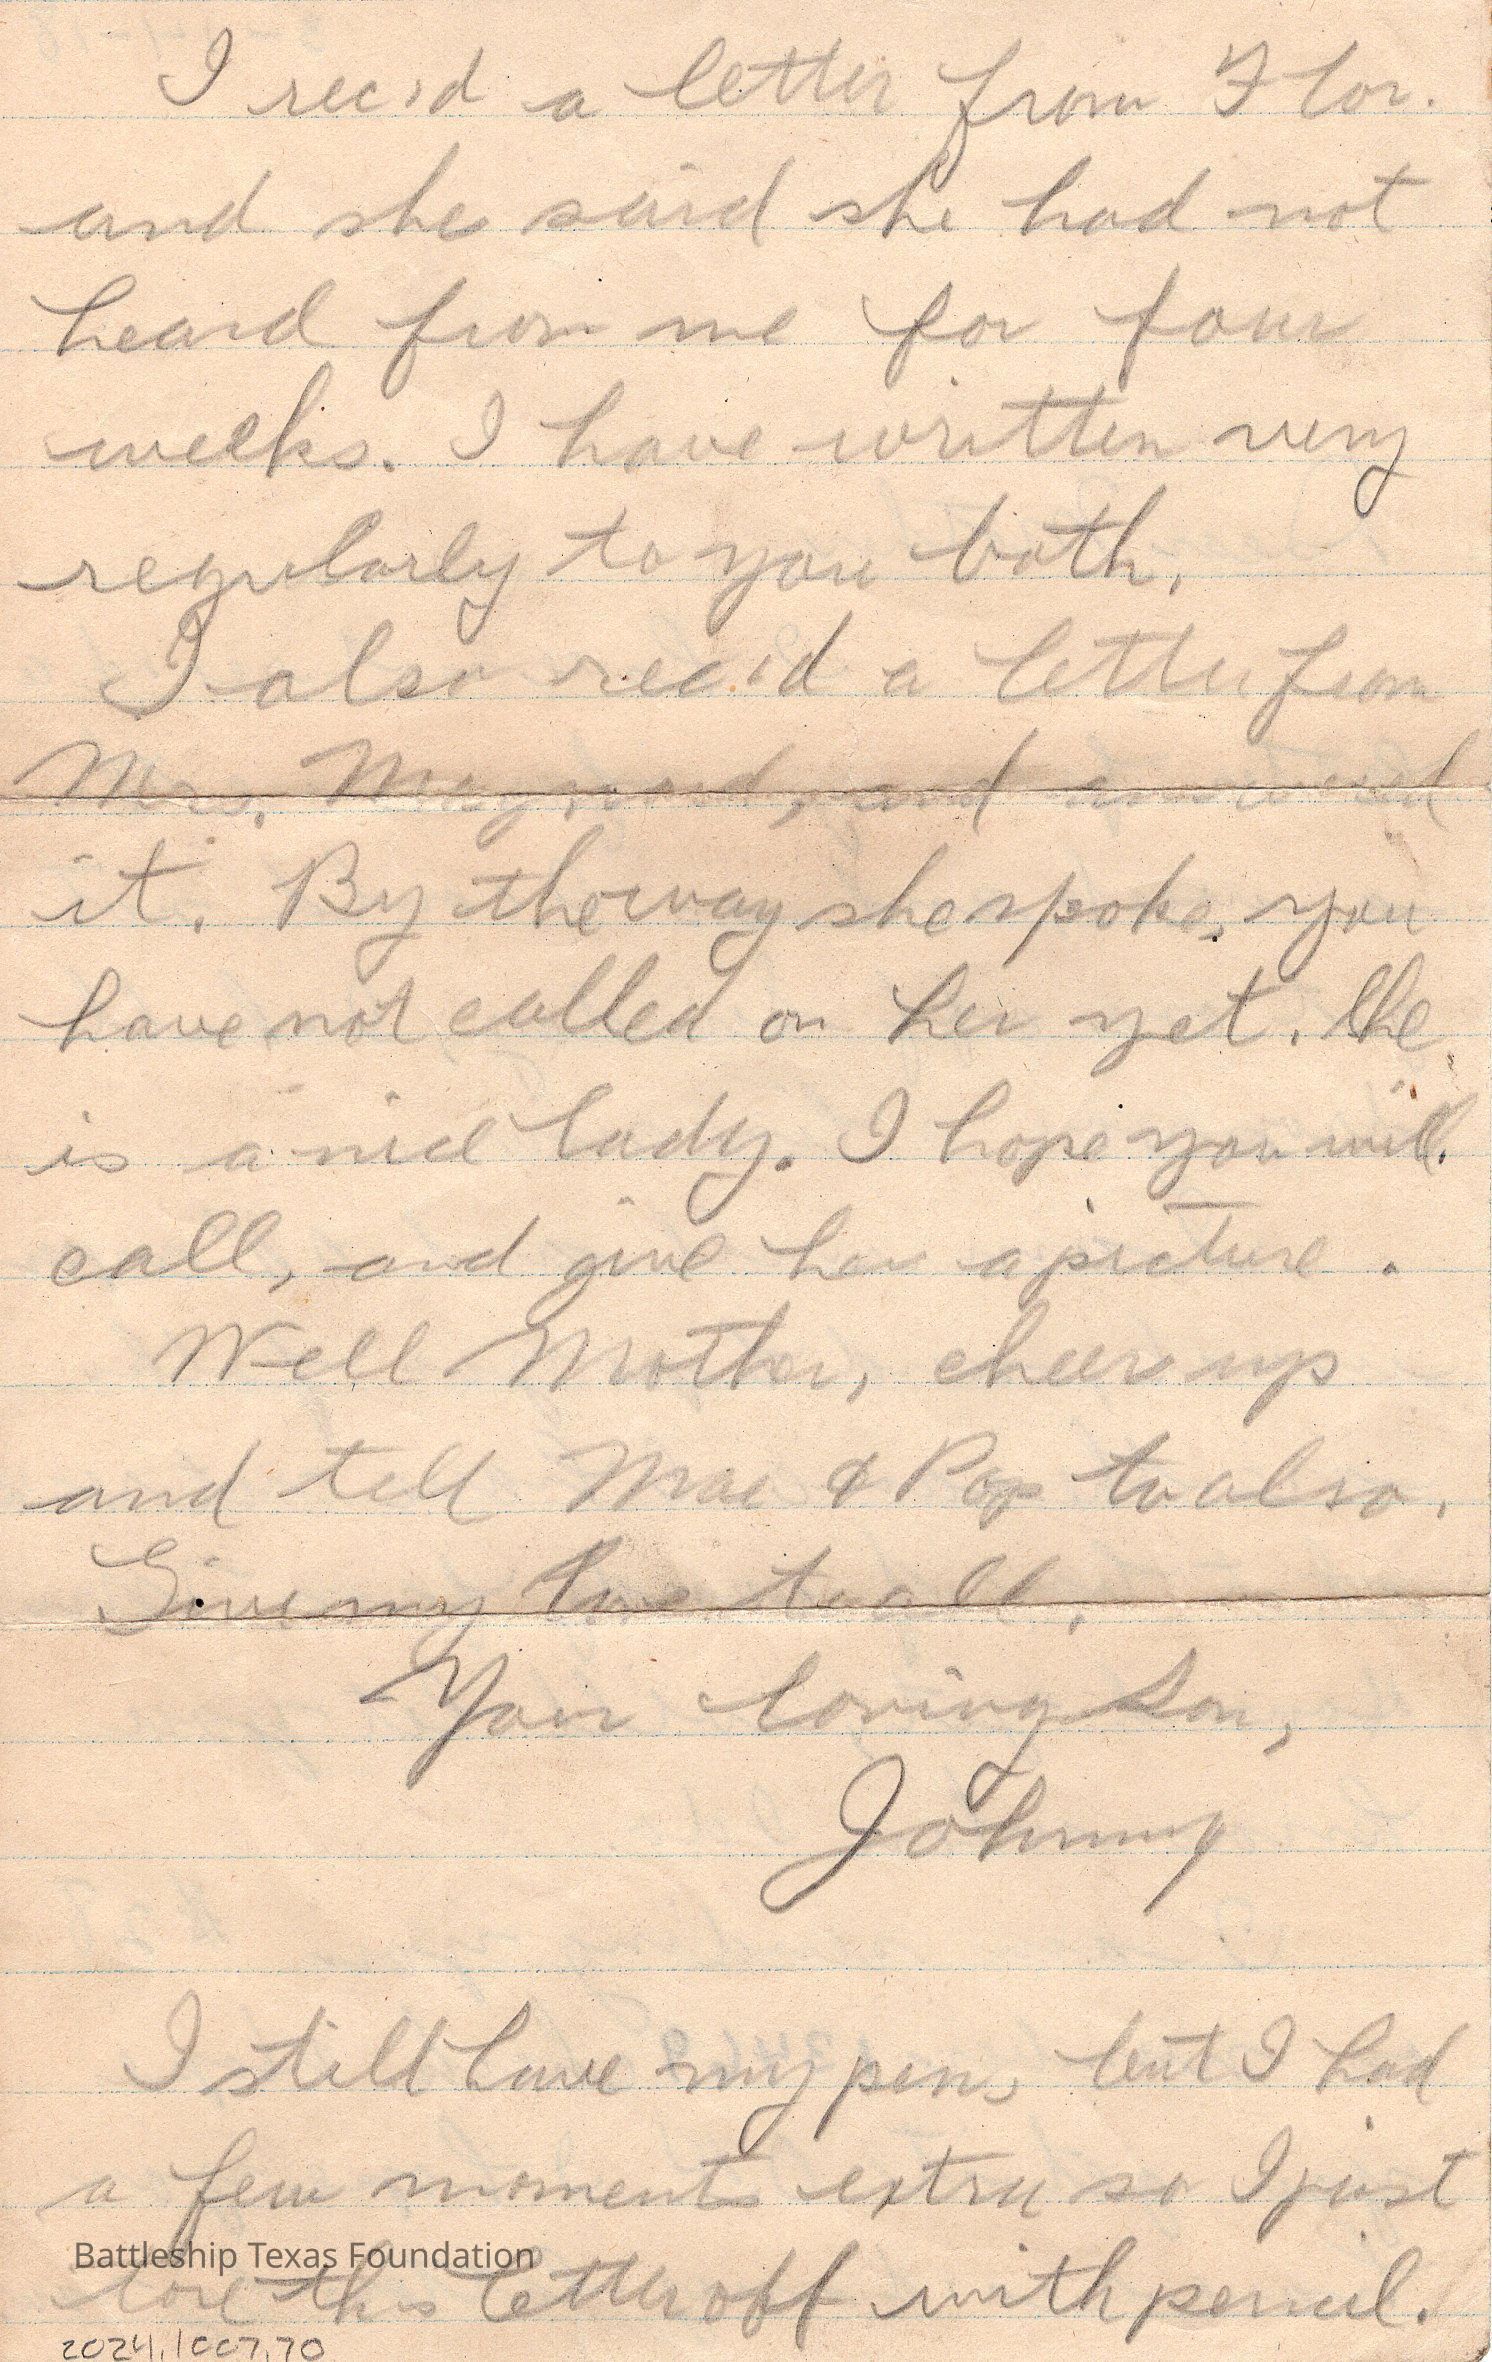 I rec'd a letter from Flor.
and she said she had not
heard from me for four
weeks. I have written very
regularly to you both.
I also rec'd a letter from
Mrs. Maynard, and answered
it. By the way she spoke, you
have not called on her yet. She
is a nice lady. I hope you will
call, and give her a picture.
Well Mother, cheer up
and tell Mae & Pop to also.
Give my love to all.
Your loving Son,
Johnny
I still have my pen, but I had
a few moments extra so I just
tore this letter off with pencil.
Battleship Texas Foundation
2024.1007.70